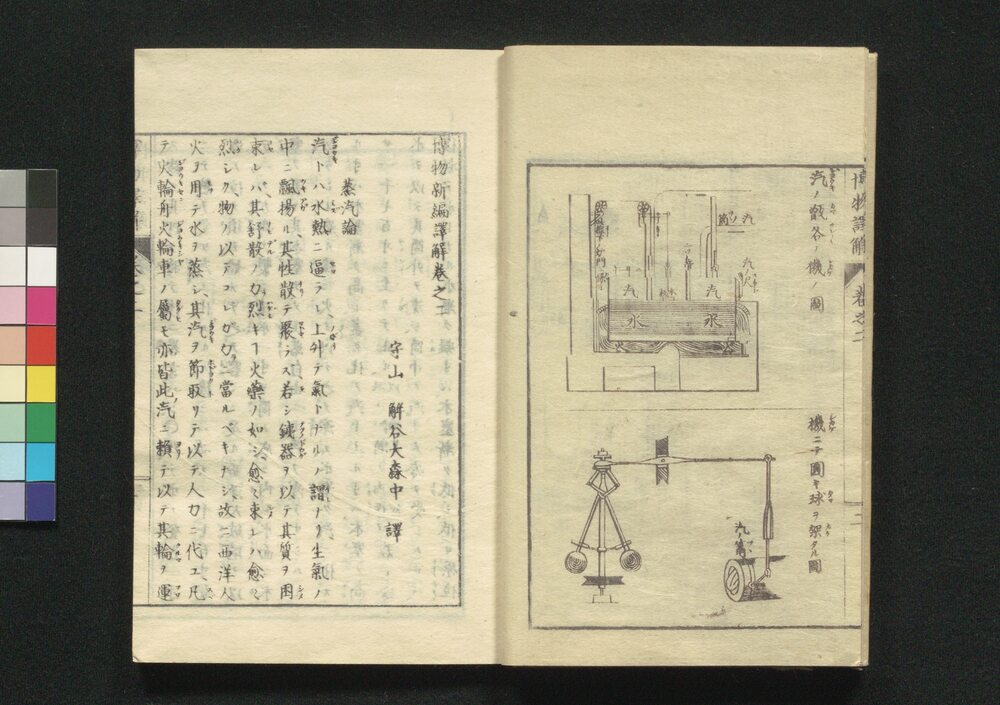 博物譯解
卷之二
汽ノ甑谷ノ機ノ圖
汽
筒
汽
汽
水
水
機ニテ圓キ球ヲ架タル圖
汽ノ筒
博物新編譯解卷之二
守山 解谷大森中 譯
蒸汽論
汽トハ水熱ニ逼ラレ上升テ氣トナルノ謂ナリ生氣ノ
中ニ飄揚ル其性散テ聚ラス若シ鐵器ヲ以テ其質ヲ困
束レバ其舒散ノ力烈キヿ火藥ノ如シ愈々束レハ愈々
烈シク物ノ以テコレガ力ニ當ルベキナシ故ニ西洋人
火ヲ用テ水ヲ蒸シ其汽ヲ節取リテ以テ人力ニ代エ凡
テ火輪舟火輪車ノ屬モ亦皆此汽ニ賴テ以テ其輪ヲ運